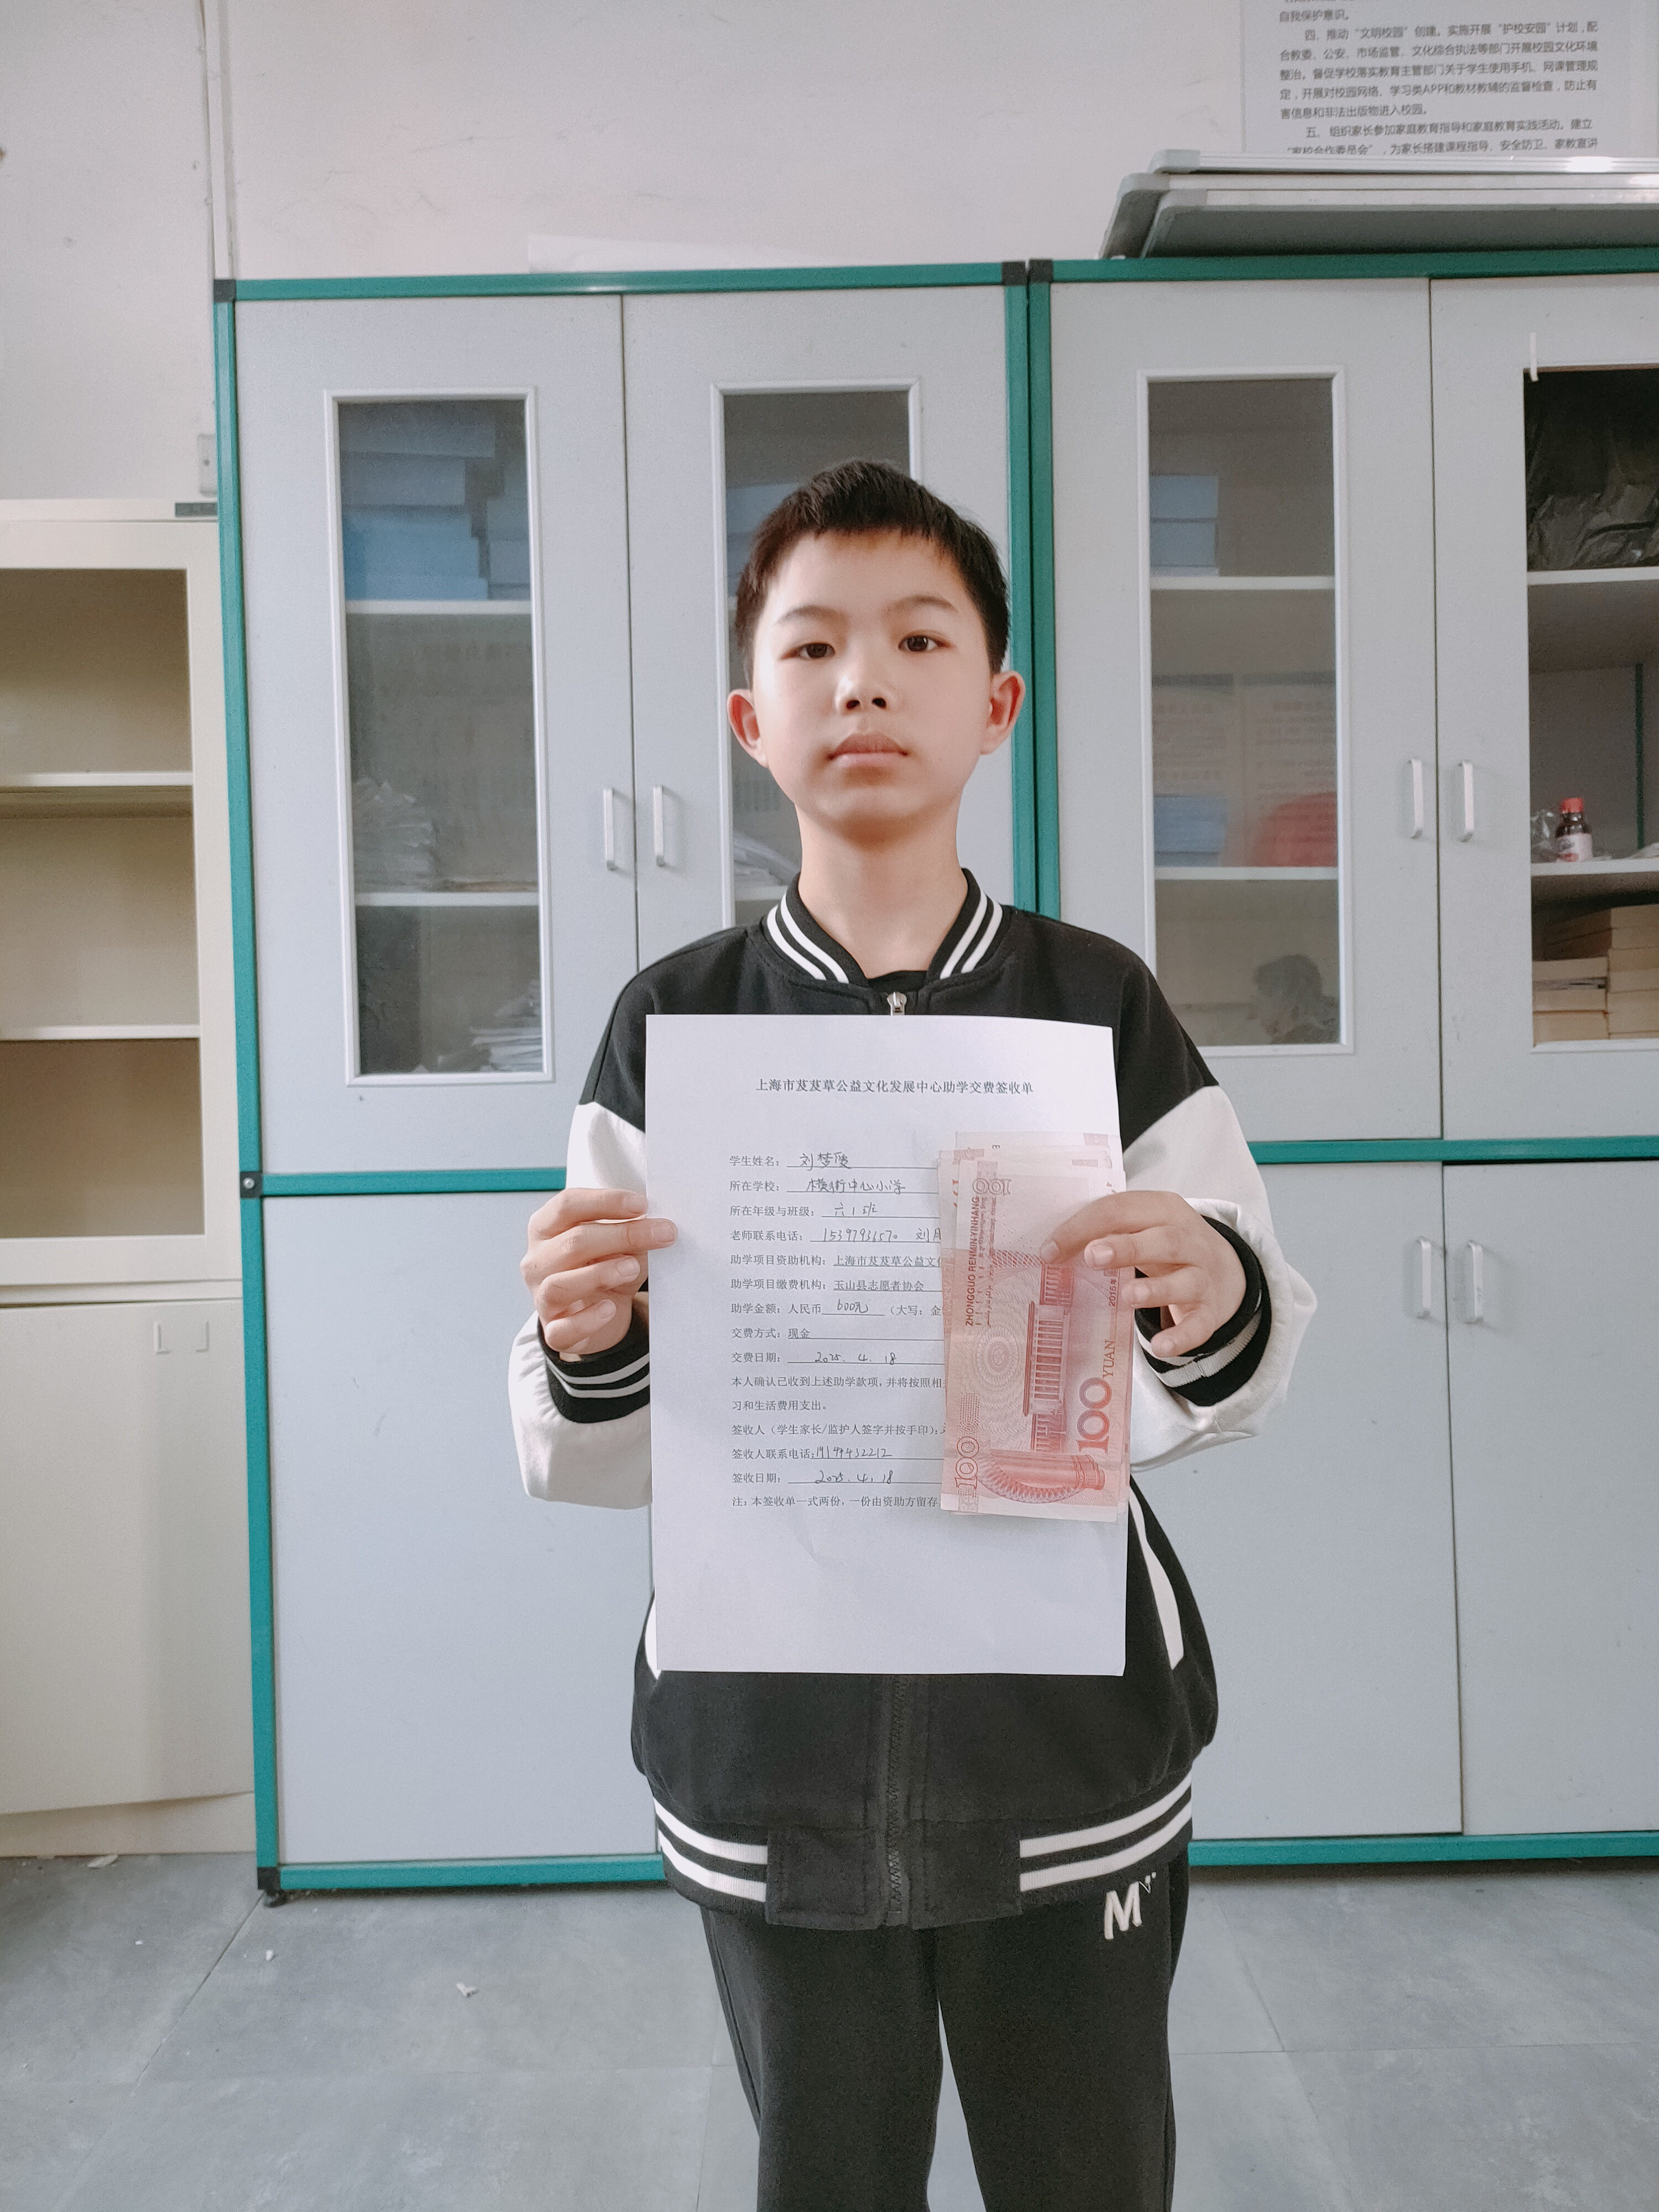 自我保护意识。
四、推动“文明校园”创建。实施开展“护校安园”计划，配
合教委、公安、市场监管、文化综合执法等部门开展校园文化环境
整治。督促学校落实教育主管部门关于学生使用手机、网课管理规
定，开展对校园网络、学习类APP和教材教辅的监督检查，防止有
害信息和非法出版物进入校园。
五、组织家长参加家庭教育指导和家庭教育实践活动。建立
“家校合作委员会”，为家长搭建课程指导、安全防卫、家教宣讲
上海市芨芨草公益文化发展中心助学交费签收单
学生姓名：刘梦
所在学校：横街中心小学
所在年级与班级：六1班
老师联系电话：15397931570 刘月
助学项目资助机构：上海市芨芨草公益文化
助学项目缴费机构：玉山县志愿者协会
助学金额：人民币600元（大写：金
交费方式：现金
交费日期：2025.4.18
本人确认已收到上述助学款项，并将按照相
习和生活费用支出。
签收人（学生家长/监护人签字并按手印）：
签收人联系电话：19199432212
签收日期：2025.4.18
注：本签收单一式两份，一份由资助方留存
ZHONGGUO RENMIN YINHANG
100
2015年
100 YUAN
100
M